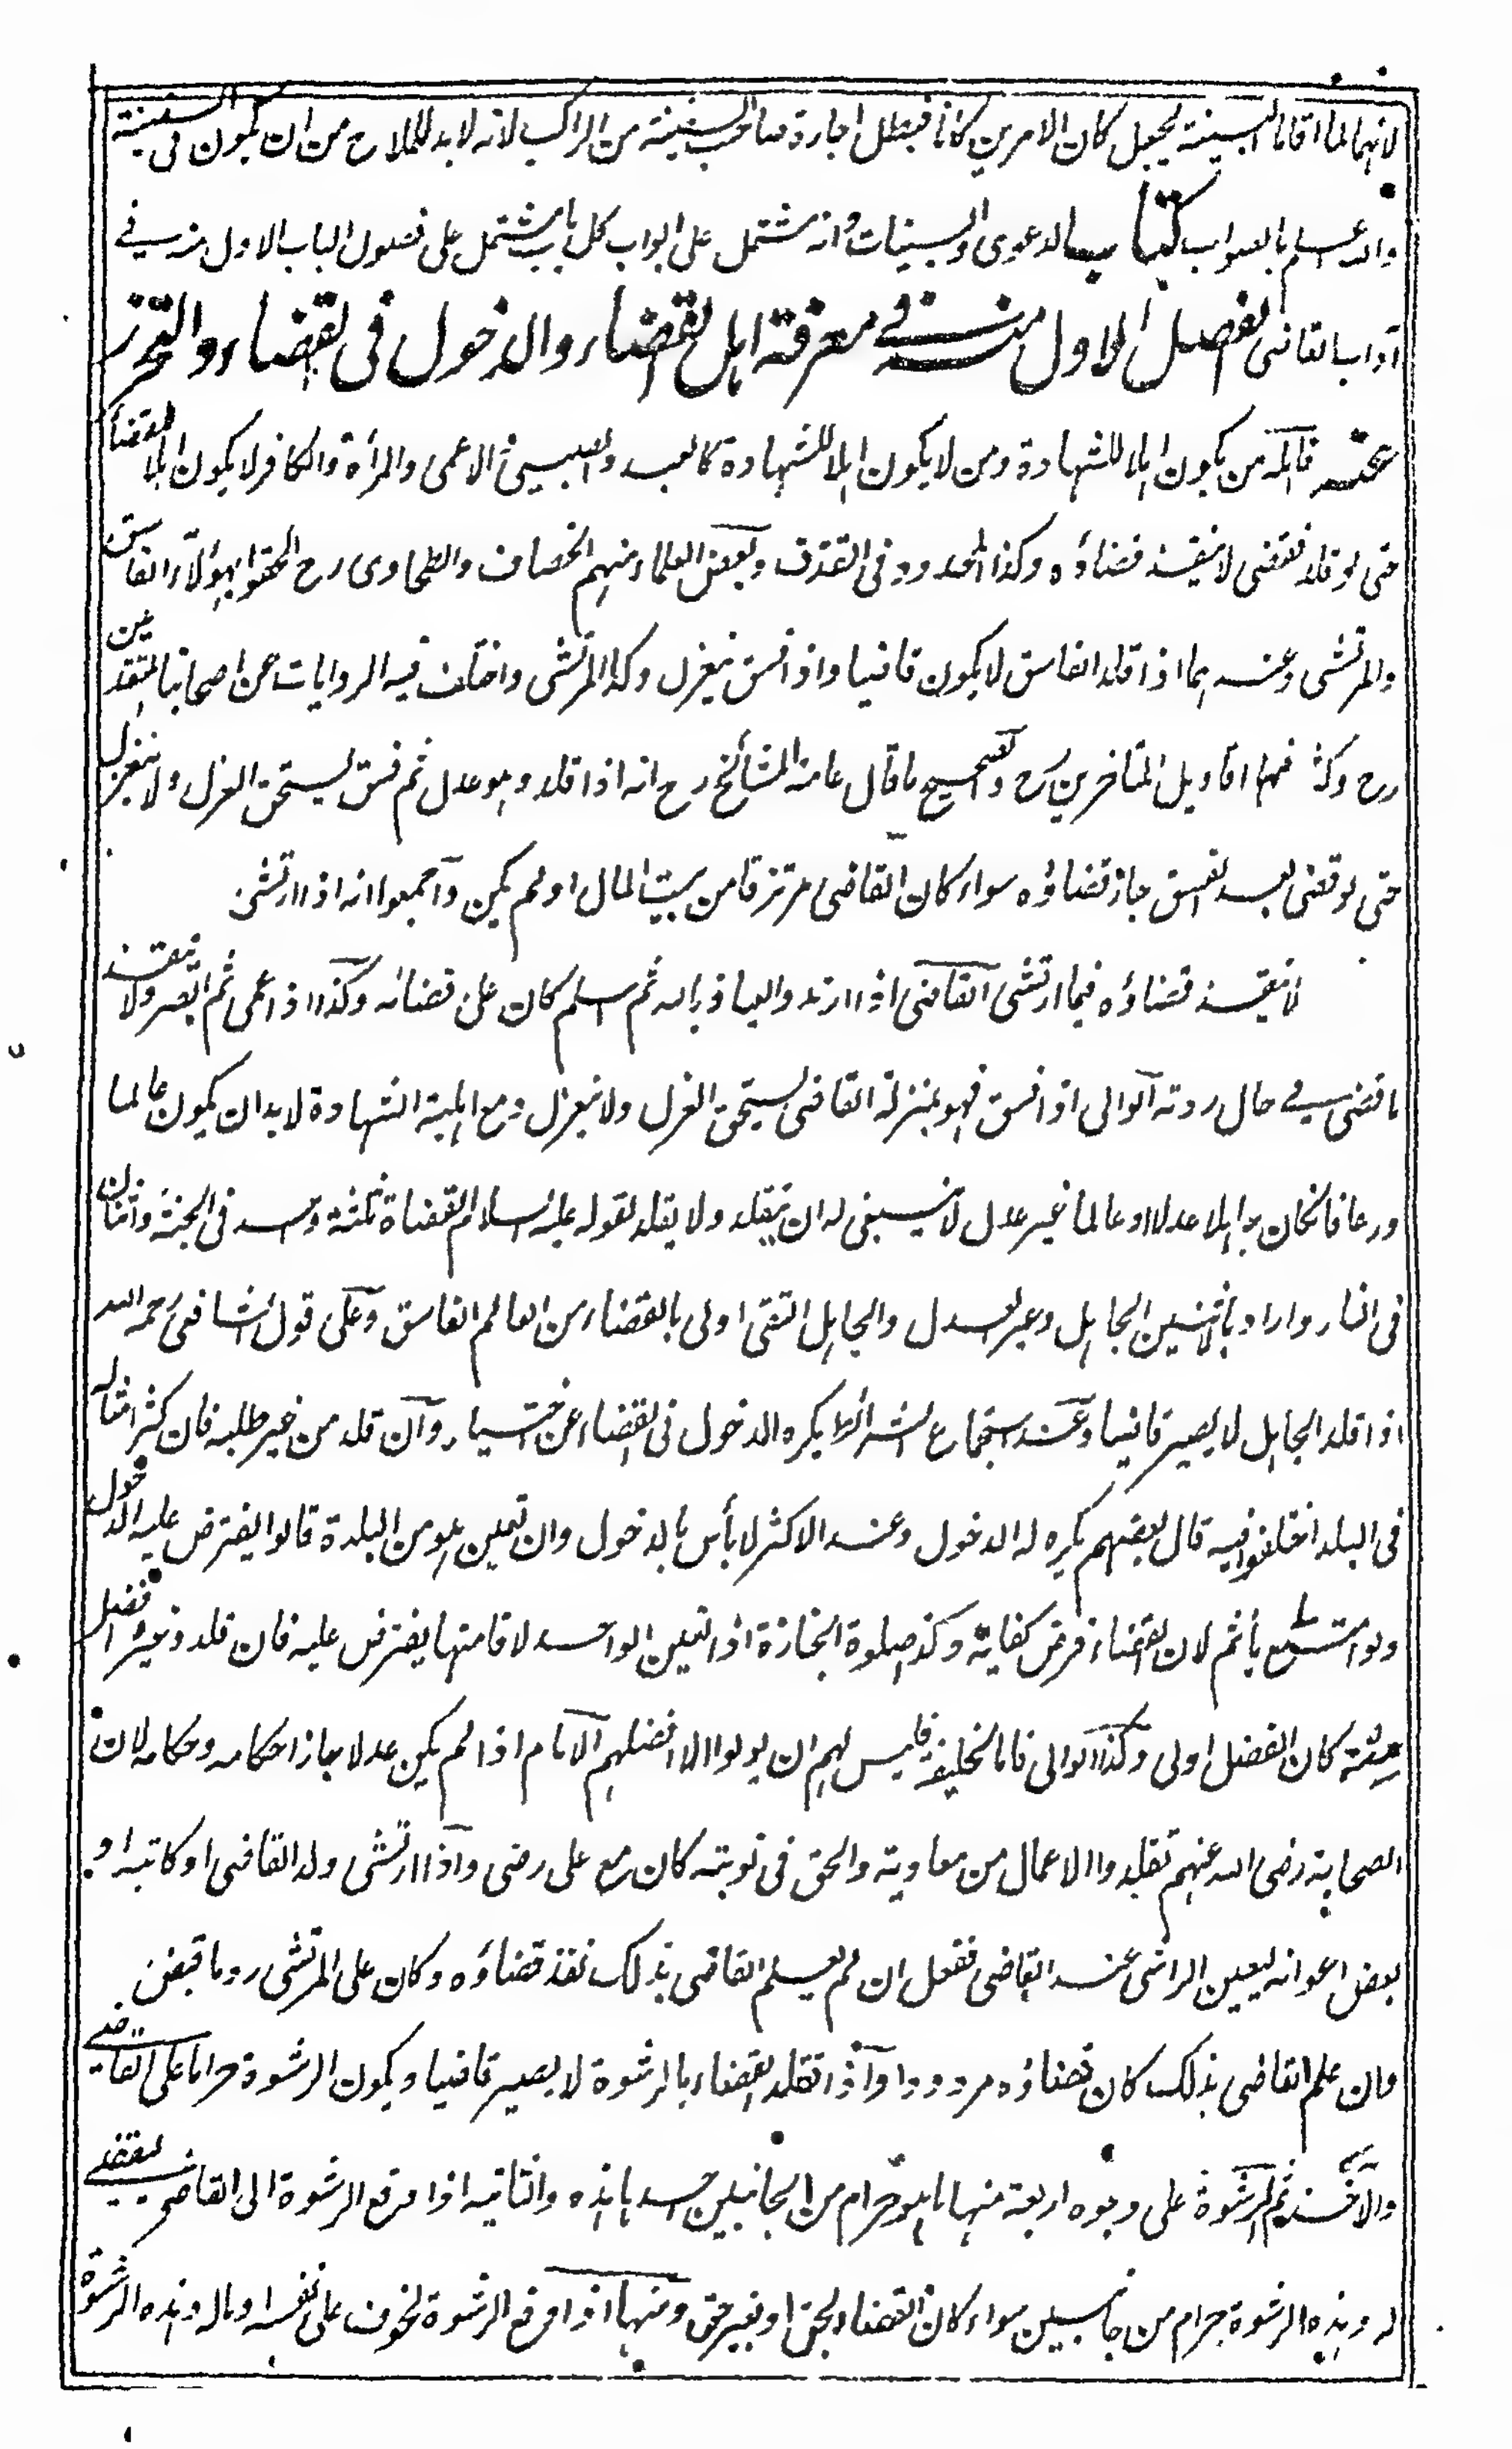 لانهما لما اقاما البينة يجعل كان الامرين كانا فيبطل اجارة صاحب السفينة من الراكب لانه لا بد للملاح من ان يكون فى السفينة
والله اعلم بالصواب كتاب الدعوى والبينات وانه مشتمل على ابواب كل باب يشتمل على فصول الباب الاول منه في
آداب القاضى الفصل الاول منه في معرفة اهل القضاء والدخول فى القضاء والتحرز
عنه قال من يكون اهلا للشهادة ومن لا يكون اهلا للشهادة كالعبد والصبى والاعمى والمرأة والكافر لا يكون اهلا للقضاء
حتى لو قلد فقضى لا ينفذ قضاؤه وكذا المحدود فى القذف وبعض العلماء منهم الخصاف والطحاوى رح الحقوا بهؤلاء الفاسق
والمرتشى وعندهما اذا قلد الفاسق لا يكون قاضيا واذا فسق ينعزل وكذا المرتشى واختلف فيه الروايات عن اصحابنا المتقدمين
رح وكذا فهم اقاويل المتاخرين رح والصحيح ما قال عامة المشائخ رح انه اذا قلد وهو عدل ثم فسق يستحق العزل ولا ينعزل
حتى لو قضى بعد الفسق جاز قضاؤه سواء كان القاضى مرتزقا من بيت المال او لم يكن وآجمعوا انه اذا ارتشى
لا ينفذ قضاؤه فيما ارتشى القاضى اذا ارتد والعياذ بالله ثم اسلم كان على قضائه وكذا اذا عمى ثم ابصر ولا ينفذ
ما قضى في حال ردته آلوالى اذا فسق فهو بمنزلة القاضى يستحق العزل ولا ينعزل ومع اهلية الشهادة لا بد ان يكون عالما
ورعا فان كان جاهلا عدلا او عالما غير عدل لا ينبغى له ان يتقلد ولا يقلد لقوله عليه السلام القضاة ثلثة واحد فى الجنة واثنان
فى النار واراد بالاثنين الجاهل وغير العدل والجاهل التقى اولى بالقضاء من العالم الفاسق وعلى قول الشافعى رحمه الله
اذا قلد الجاهل لا يصير قاضيا وعند استجماع الشرائط يكره الدخول فى القضاء عن اختيار وآن قلد من غير طلبه فان كثر امثاله
فى البلد اختلفوا فيه قال بعضهم يكره له الدخول وعند الاكثر لا بأس بالدخول وان تعين هو من البلدة قالوا يفترض عليه الدخول
ولو امتنع يأثم لان القضاء فرض كفاية وكذا صلوة الجنازة اذا تعين الواحد لاقامتها يفترض عليه فان قلد وغيره افضل
منه كان الفضل اولى وكذا الوالى فاما الخليفة فليس لهم ان يولوا الا افضلهم الامام اذا لم يكن عدلا جاز احكامه وحكامه لان
الصحابة رضى الله عنهم تقلدوا الاعمال من معاوية والحق فى نوبته كان مع على رضى واذا ارتشى ولد القاضى او كاتبه او
بعض اعوانه ليعين الراشى عند القاضى ففعل ان لم يعلم القاضى بذلك نفذ قضاؤه وكان على المرتشى رد ما قبض
وان علم القاضى بذلك كان قضاؤه مردودا وآذا تقلد القضاء بالرشوة لا يصير قاضيا ويكون الرشوة حراما على القاضي
والآخذ ثم الرشوة على وجوه اربعة منها ما هو حرام من الجانبين احدها هذه والثانية اذا دفع الرشوة الى القاضي ليقضي
له وهذه الرشوة حرام من جانبين سواء كان القضاء بحق او بغير حق ومنها اذا دفع الرشوة لخوف على نفسه او ماله وهذه الرشوة